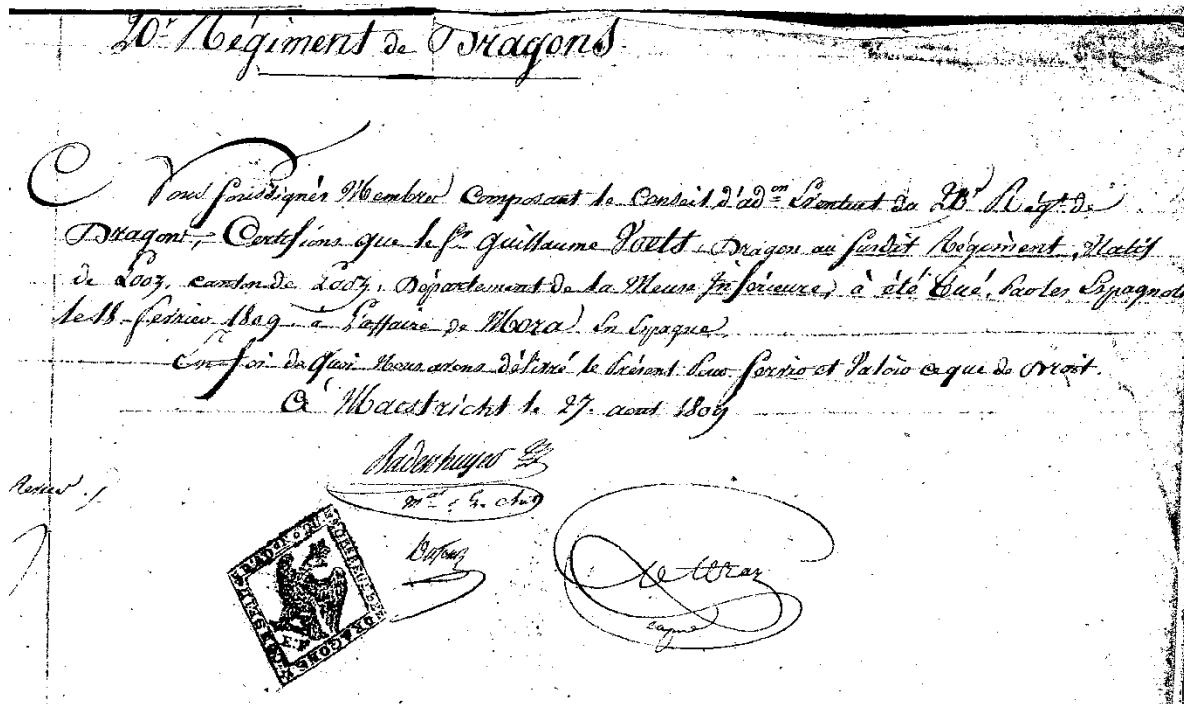 20.r Régiment de Dragons
Nous soussignés Membres Composant le Conseil d'ad.on Éventuel du 20.r Rég.t de
Dragons, Certifions que le S.r Guillaume Voets, Dragon au susdit Régiment, Natif
de Looz, canton de Looz, Département de la Meuse Inférieure, à été tué, Par les Espagnols
le 18 février 1809 à l'affaire de Mora En Espagne
En foi de Quoi Nous avons délivré le Présent Pour servir et Valoir ce que de Droit.
A Maestricht le 27. aout 1809
DRAGONS